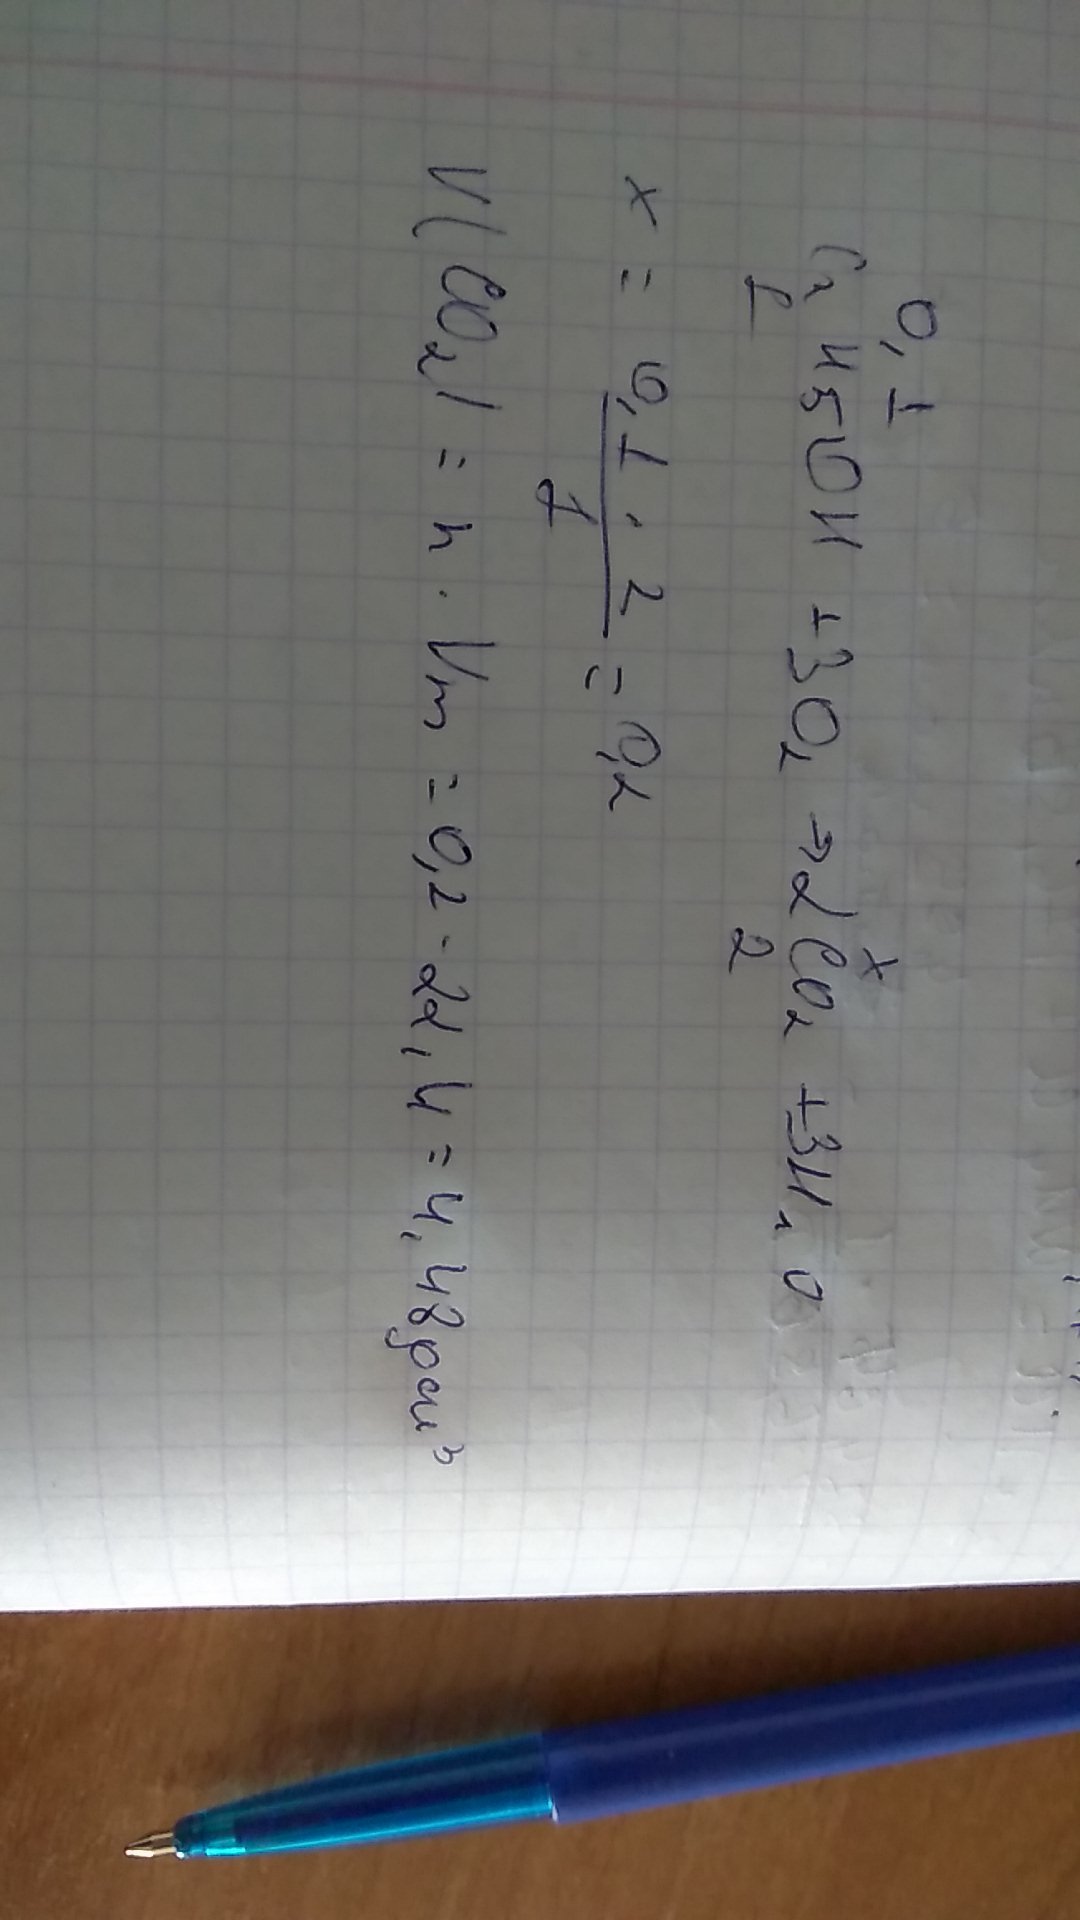 0,1 x
C₂H5OH + 3O₂ → 2CO₂ + 3H₂O
1 2
x = 0,1 · 2 / 1 = 0,2
V(CO₂) = n · Vm = 0,2 · 22,4 = 4,48 дм³